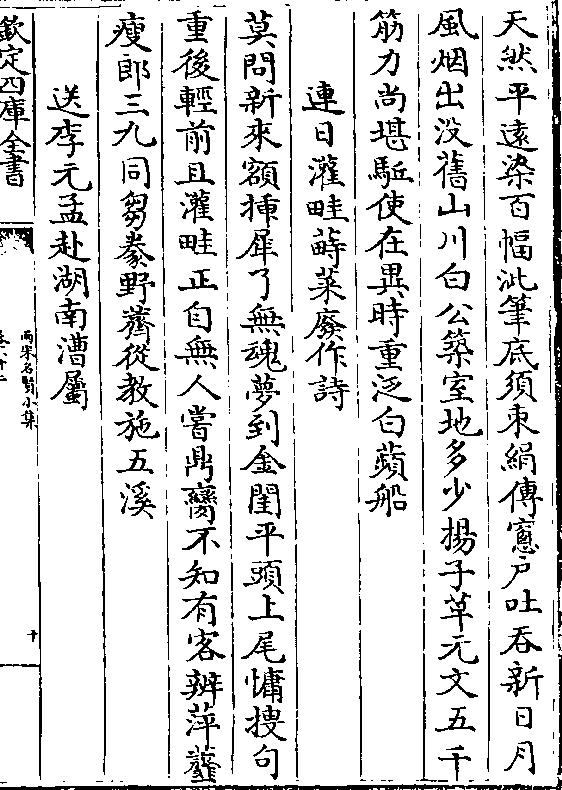 天然平遠染百幅泚筆底須束絹傳窻戶吐吞新日月
風烟出没舊山川白公築室地多少揚子草元文五千
筋力尚堪駈使在異時重泛白蘋船
連日灌畦蒔菜廢作詩
莫問新來額揷犀了無魂夢到金閨平頭上尾慵搜句
重後輕前且灌畦正自無人嘗鼎臠不知有客辨萍虀
瘦郎三九同芻豢野薺從教施五溪
送李元孟赴湖南漕屬
欽定四庫全書
兩宋名賢小集
十